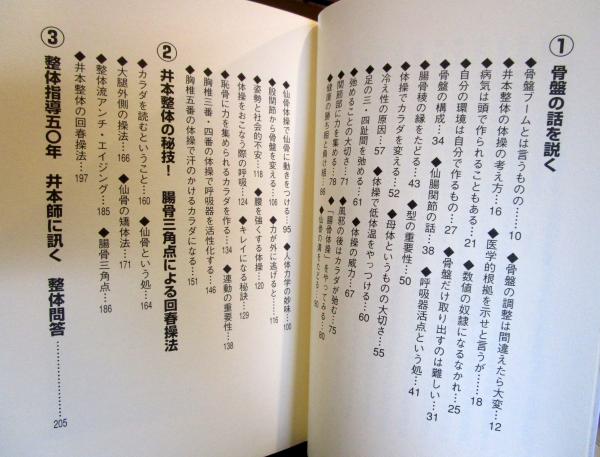 ① 骨盤の話を説く
◆骨盤ブームとは言うものの……10 ◆骨盤の調整は間違えたら大変…12
◆井本整体の体操の考え方…16 ◆医学的根拠を示せと言うが…18
◆病気は頭で作られることもある…21 ◆数値の奴隷になるなかれ…25
◆自分の環境は自分で作るもの…27 ◆骨盤だけ取り出すのは難しい…31
◆骨盤の構成…34 ◆仙腸関節の話…38 ◆呼吸器活点という処…41
◆腸骨稜の縁をたどる…43 ◆型の重要性…50
◆体操でカラダを変える…52 ◆母体というものの大切さ…55
◆冷え性の原因…57 ◆体操で低体温をやっつける…60
◆足の三・四趾間を弛める…61 ◆体操の威力…67
◆弛めることの大切さ…71 ◆風邪の後はカラダが弛む…75
◆関節部に力を集める…78 ◆「腸骨体操」をやってみる…80
◆健康の勝ち組と負け組…86 ◆仙骨の溝をたどる…90
◆仙骨体操で仙骨に動きをつける…95
◆股関節から骨盤を変える…106 ◆人体力学の妙味…100
◆姿勢と社会的不安…118 ◆力が外に逃げると…116
◆体操をおこなう際の呼吸…124 ◆腰を強くする体操…120
◆恥骨に力を集められるカラダを作る…134 ◆キレイになる秘訣…129
◆胸椎三番・四番の体操で呼吸器を活性化する…146 ◆運動の重要性…138
◆胸椎五番の体操で汗のかけるカラダになる…151
② 井本整体の秘技！ 腸骨三角点による回春操法
◆カラダを読むということ…160 ◆仙骨という処…164
◆大腿外側の操法…166 ◆仙骨の矯体法…171
◆整体流アンチ・エイジング…185 ◆腸骨三角点…186
◆井本整体の回春操法…197
③ 整体指導五〇年 井本師に訊く 整体問答……………205